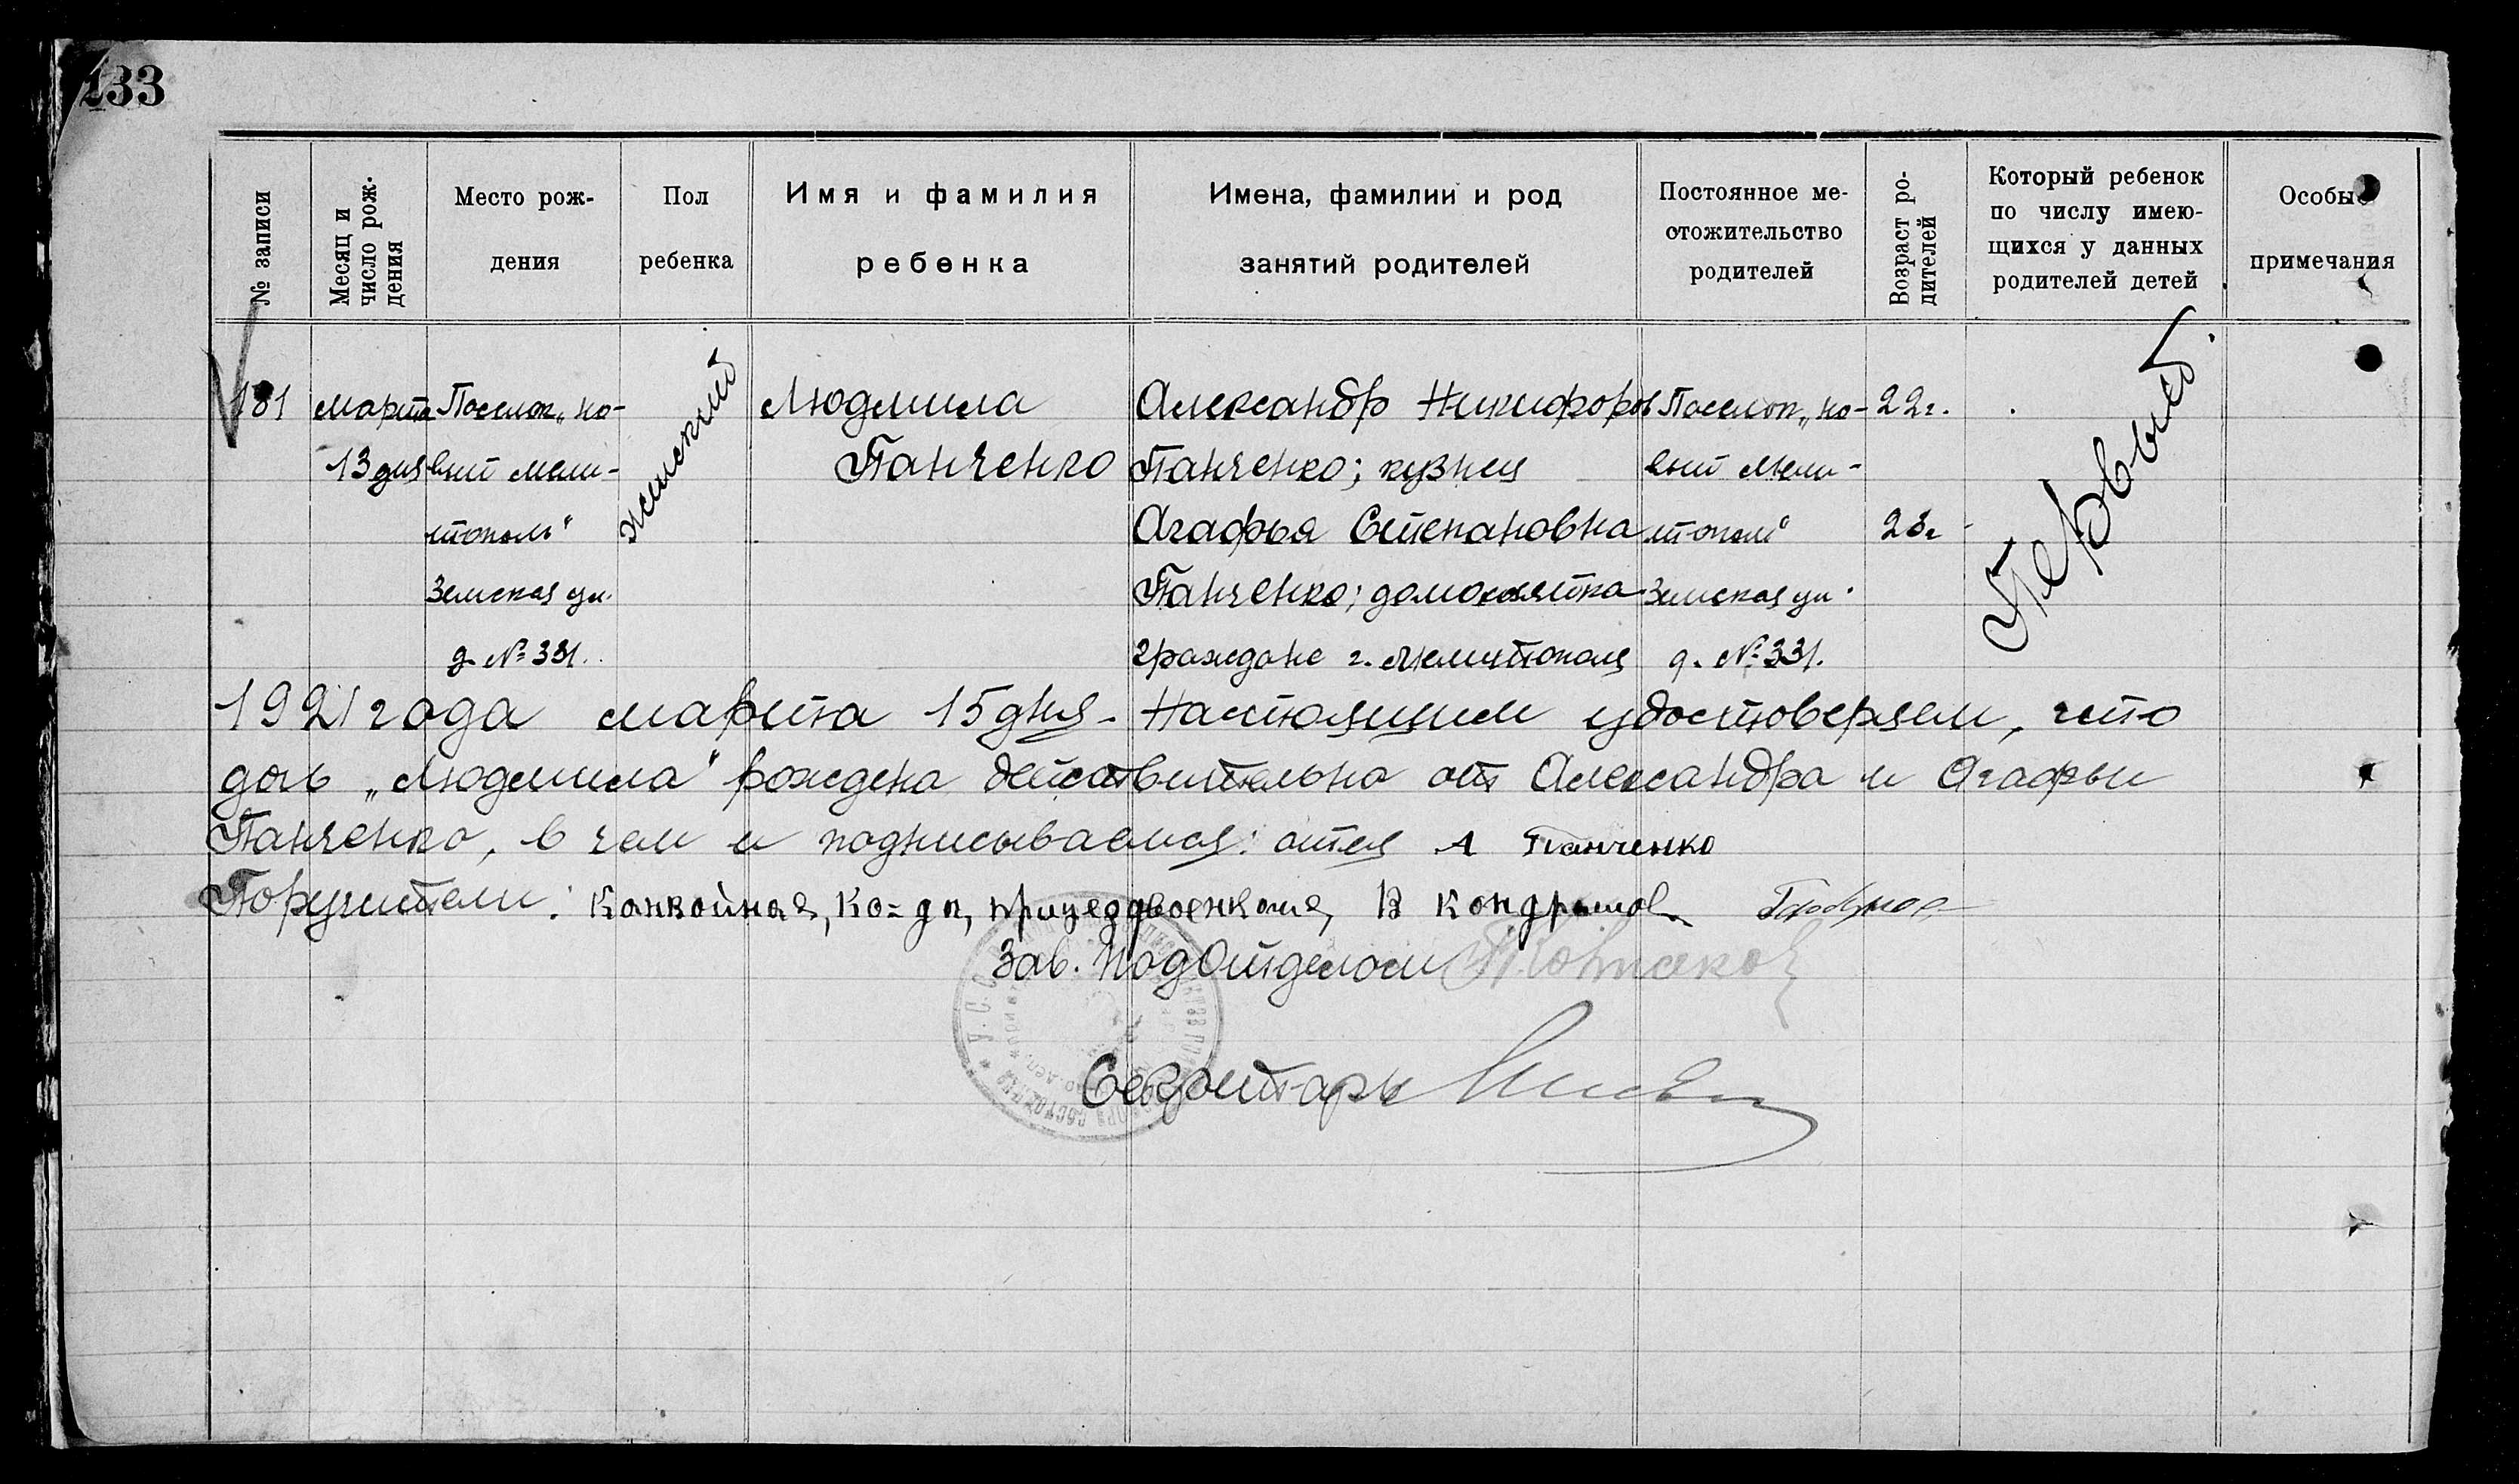 133
№ записи
Месяц и число рождения
Место рож-
дения
Пол
ребенка
Имя и фамилия
ребенка
Имена, фамилии и род
занятий родителей
Постоянное ме-
стожительство
родителей
Возраст ро-
дителей
Который ребенок
по числу имею-
щихся у данных
родителей детей
Особые
примечания
181 марта Поселок „но- женский Людмила Александр Никифоров Поселок „но- 22г. Первый
13 дня вый мели- Панченко Панченко; кузнец вый мели-
тополь“ Агафья Степановна тополь“ 23г
Земская ул. Панченко; домохозяйка Земская ул.
д. № 331. граждане г. Мелитополя д. № 331.
1921 года марта 15 дня. Настоящим удостоверяем, что
дочь „Людмила“ рождена действительно от Александра и Агафьи
Панченко, в чем и подписываемся: отец А Панченко
Поручители: В Кондрашов
Зав. Подотделом
Секретарь